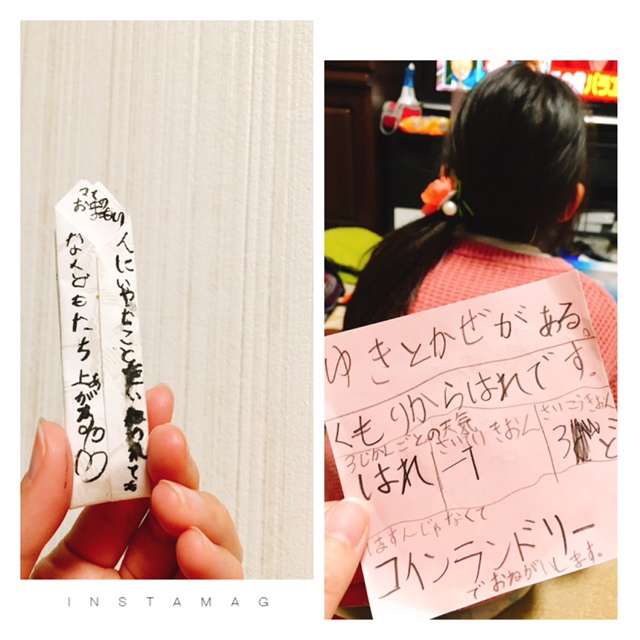 お守り
人にいやなこと
われても
なんどもたち上がる
あ
ゆきとかぜがある。
くもりからはれです。
3じかんごとの天気
はれ
さいていきおん
-1
さいこうきおん
3ど
ほすんじゃなくて
コインランドリー
でおねがいします。
バラエ
INSTAMAG